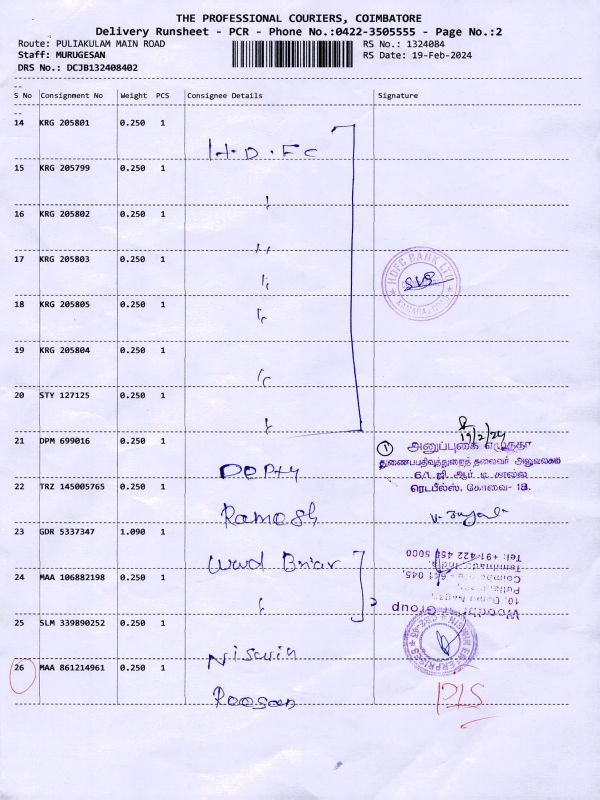 THE PROFESSIONAL COURIERS, COIMBATORE
Delivery Runsheet - PCR - Phone No.:0422-3505555 - Page No.:2
Route: PULIAKULAM MAIN ROAD RS No.: 1324084
Staff: MURUGESAN RS Date: 19-Feb-2024
DRS No.: DCJB132408402
S No Consignment No Weight PCS Consignee Details Signature
14 KRG 205801 0.250 1
H.D.FC
15 KRG 205799 0.250 1
16 KRG 205802 0.250 1
17 KRG 205803 0.250 1
HDFC BANK LTD
18 KRG 205805 0.250 1
19 KRG 205804 0.250 1
20 STY 127125 0.250 1
19/2/24
21 DPM 699016 0.250 1
① அனுப்புகை எழுத்தர்
துணைபதிவுத்துறைத் தலைவர் அலுவலகம்
DEPTY
ரெட்பீல்ஸ், கோவை- 18.
22 TRZ 145005765 0.250 1
Ramesh
23 GDR 5337347 1.090 1
Wood Briar
Tel: +91-422 458 5000
24 MAA 106882198 0.250 1
Woodbriar Group
25 SLM 339890252 0.250 1
ENTERPRISES
26 MAA 861214961 0.250 1
Roosan